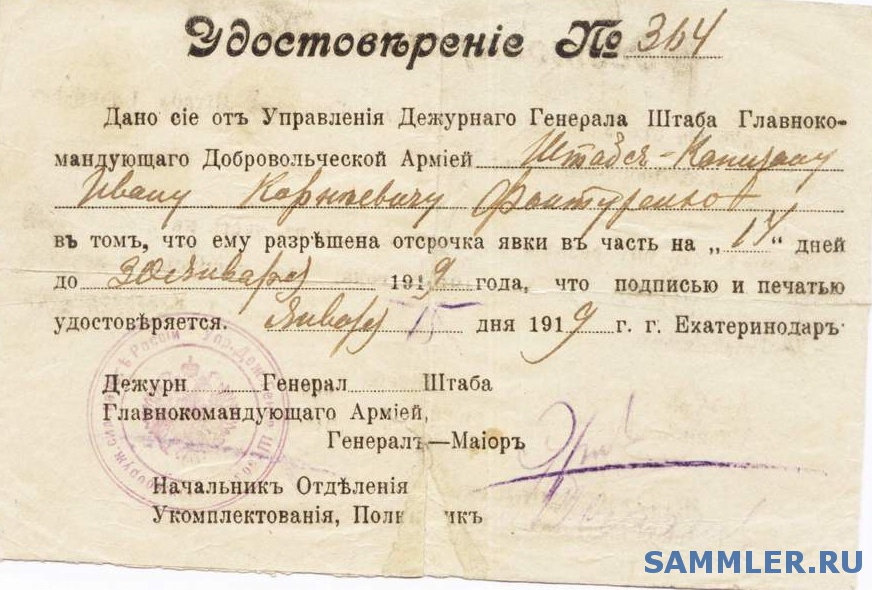 Удостовѣреніе № 364
Дано сіе отъ Управленія Дежурнаго Генерала Штаба Главноко-
мандующаго Добровольческой Арміей Штабсъ-Капитану
Ивану Корнѣевичу
въ томъ, что ему разрѣшена отсрочка явки въ часть на „14" дней
до 30 Января 1919 года, что подписью и печатью
удостовѣряется. Января 15 дня 1919 г. г. Екатеринодаръ
Дежурн Генерал Штаба
Главнокомандующаго Арміей,
Генералъ—Маіоръ
Начальникъ Отдѣленія
Укомплектованія, Полк икъ
SAMMLER.RU